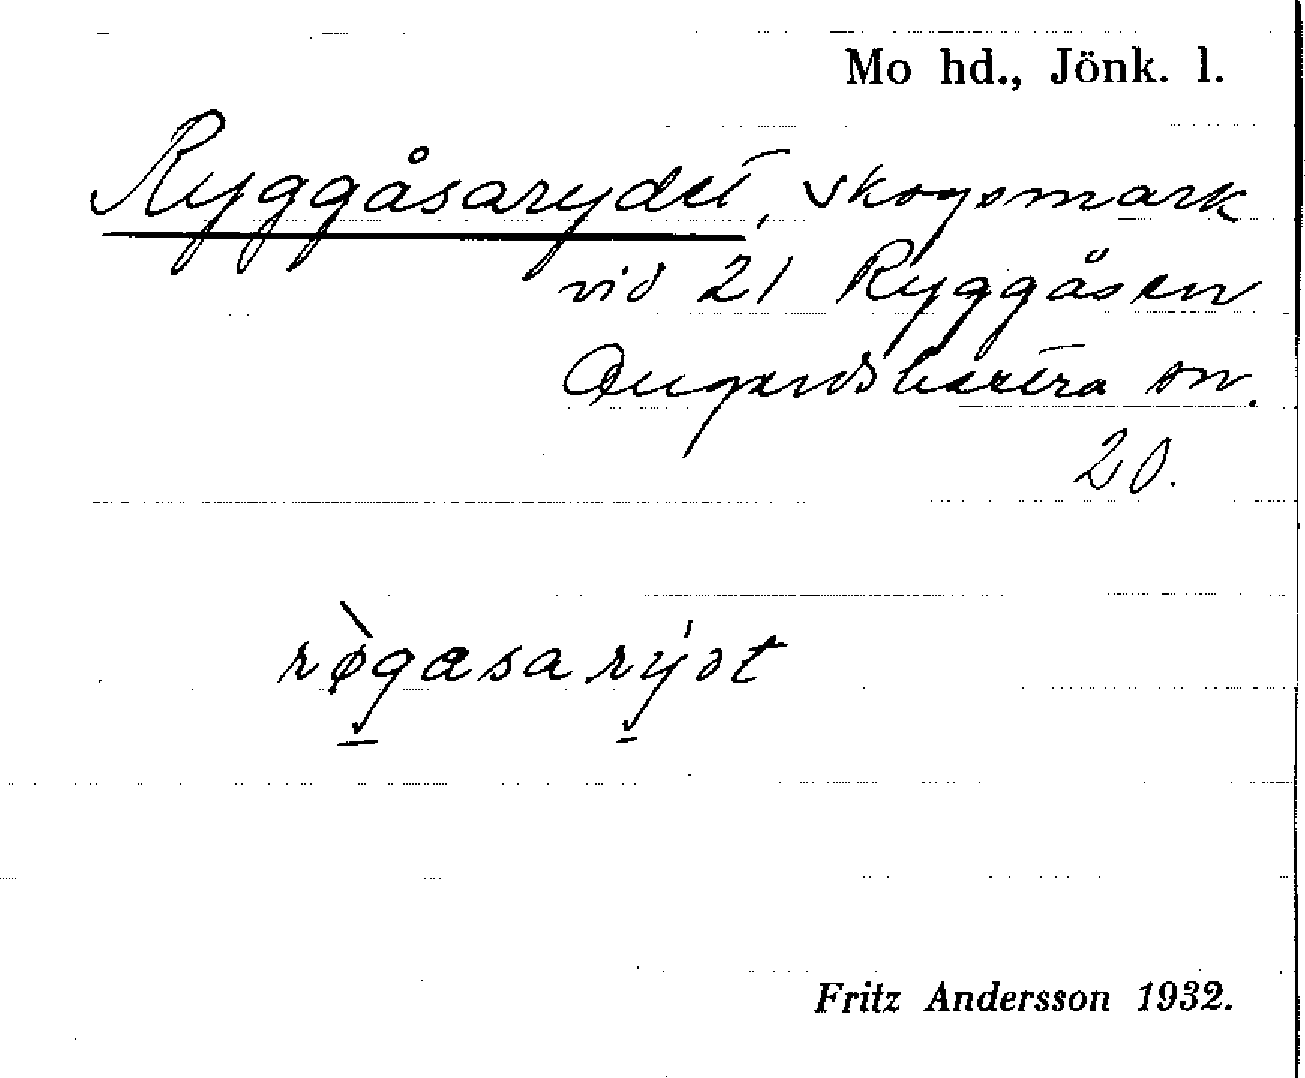 Mo hd., Jönk. l.
Ryggåsarydet, skogsmark
vid 21 Ryggåsen
Öngardsbestra sn.
20.
rø̀gasarýdt
Fritz Andersson 1932.